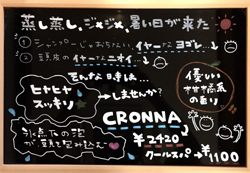 蒸し蒸し、ジメジメ、暑い日が来た
① シャンプーじゃおちない、イヤ〜なヨゴレ…
② 頭皮のイヤ〜なニオイ…
そんな日常を…
ヒヤヒヤ
スッキリ
しませんか?
優しい
柑橘系
の香り
氷点下の泡
が頭を包み込む
CRONNA
¥2420
クールスパ → ¥1100